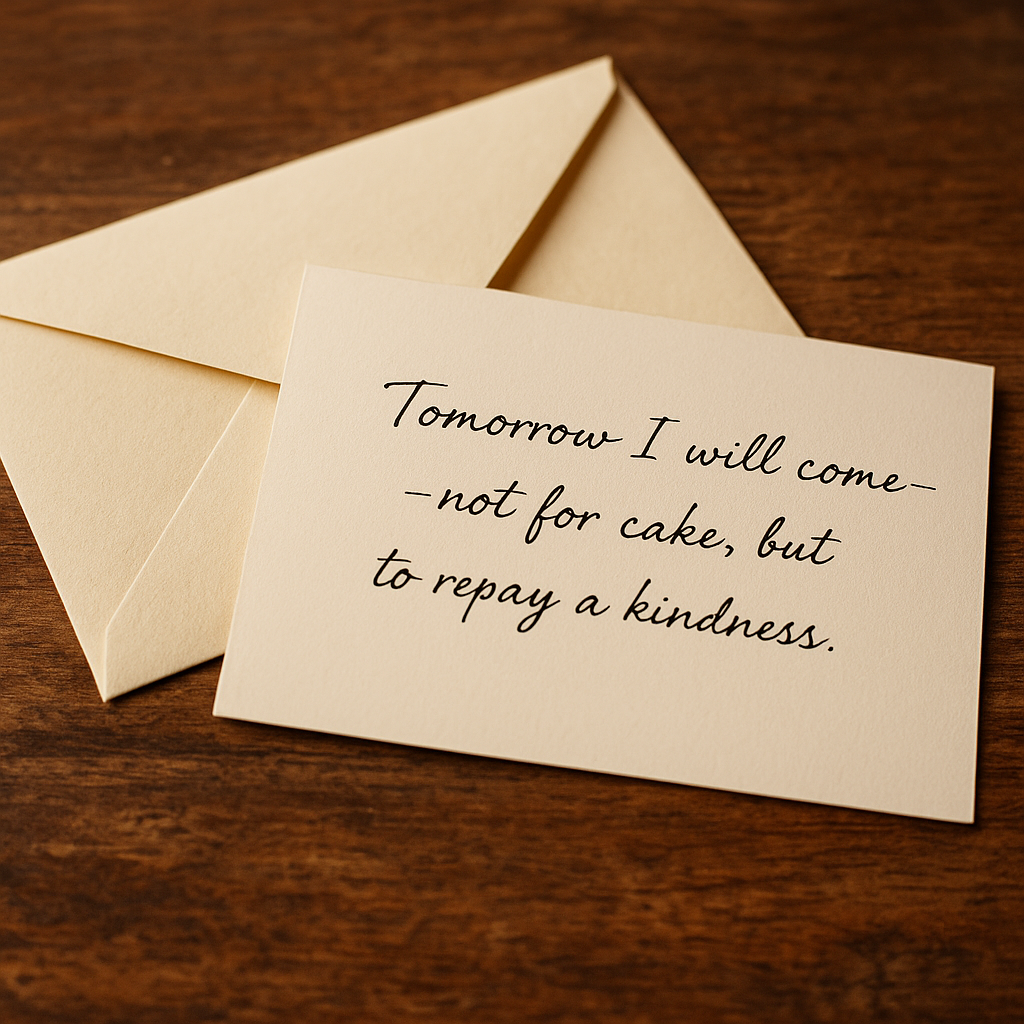 Tomorrow I will come–
–not for cake, but
to repay a kindness.